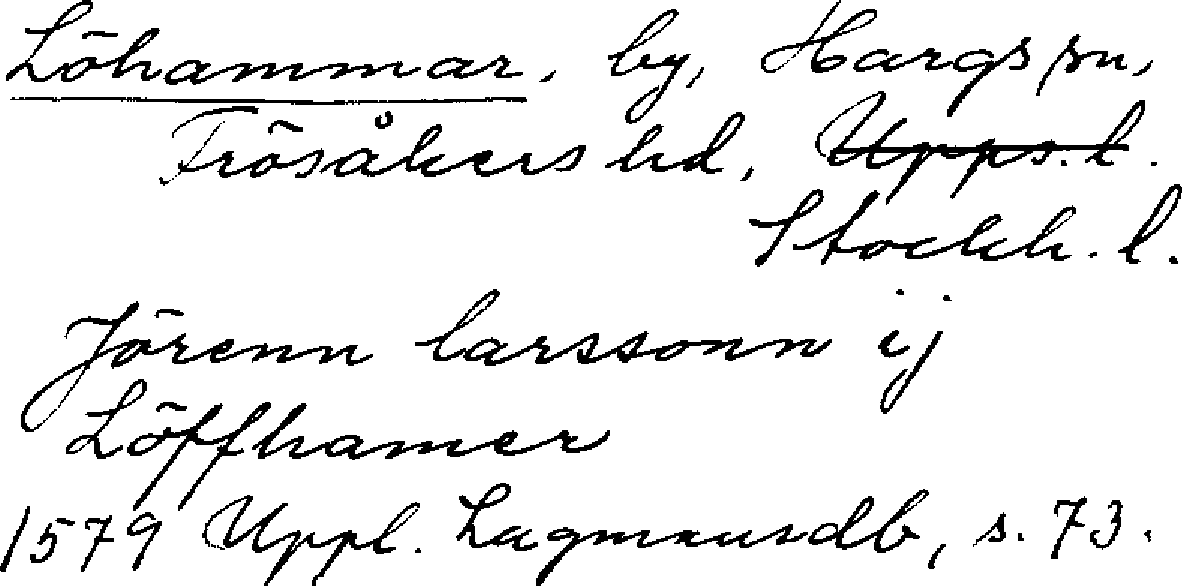 Löhammar, by, Hargs sn,
Frösåkers hd, Upps. l.
Stockh. l.
Jörenn larssonn ij
Löffhamer
1579 Uppl. Lagmansdb, s. 73.